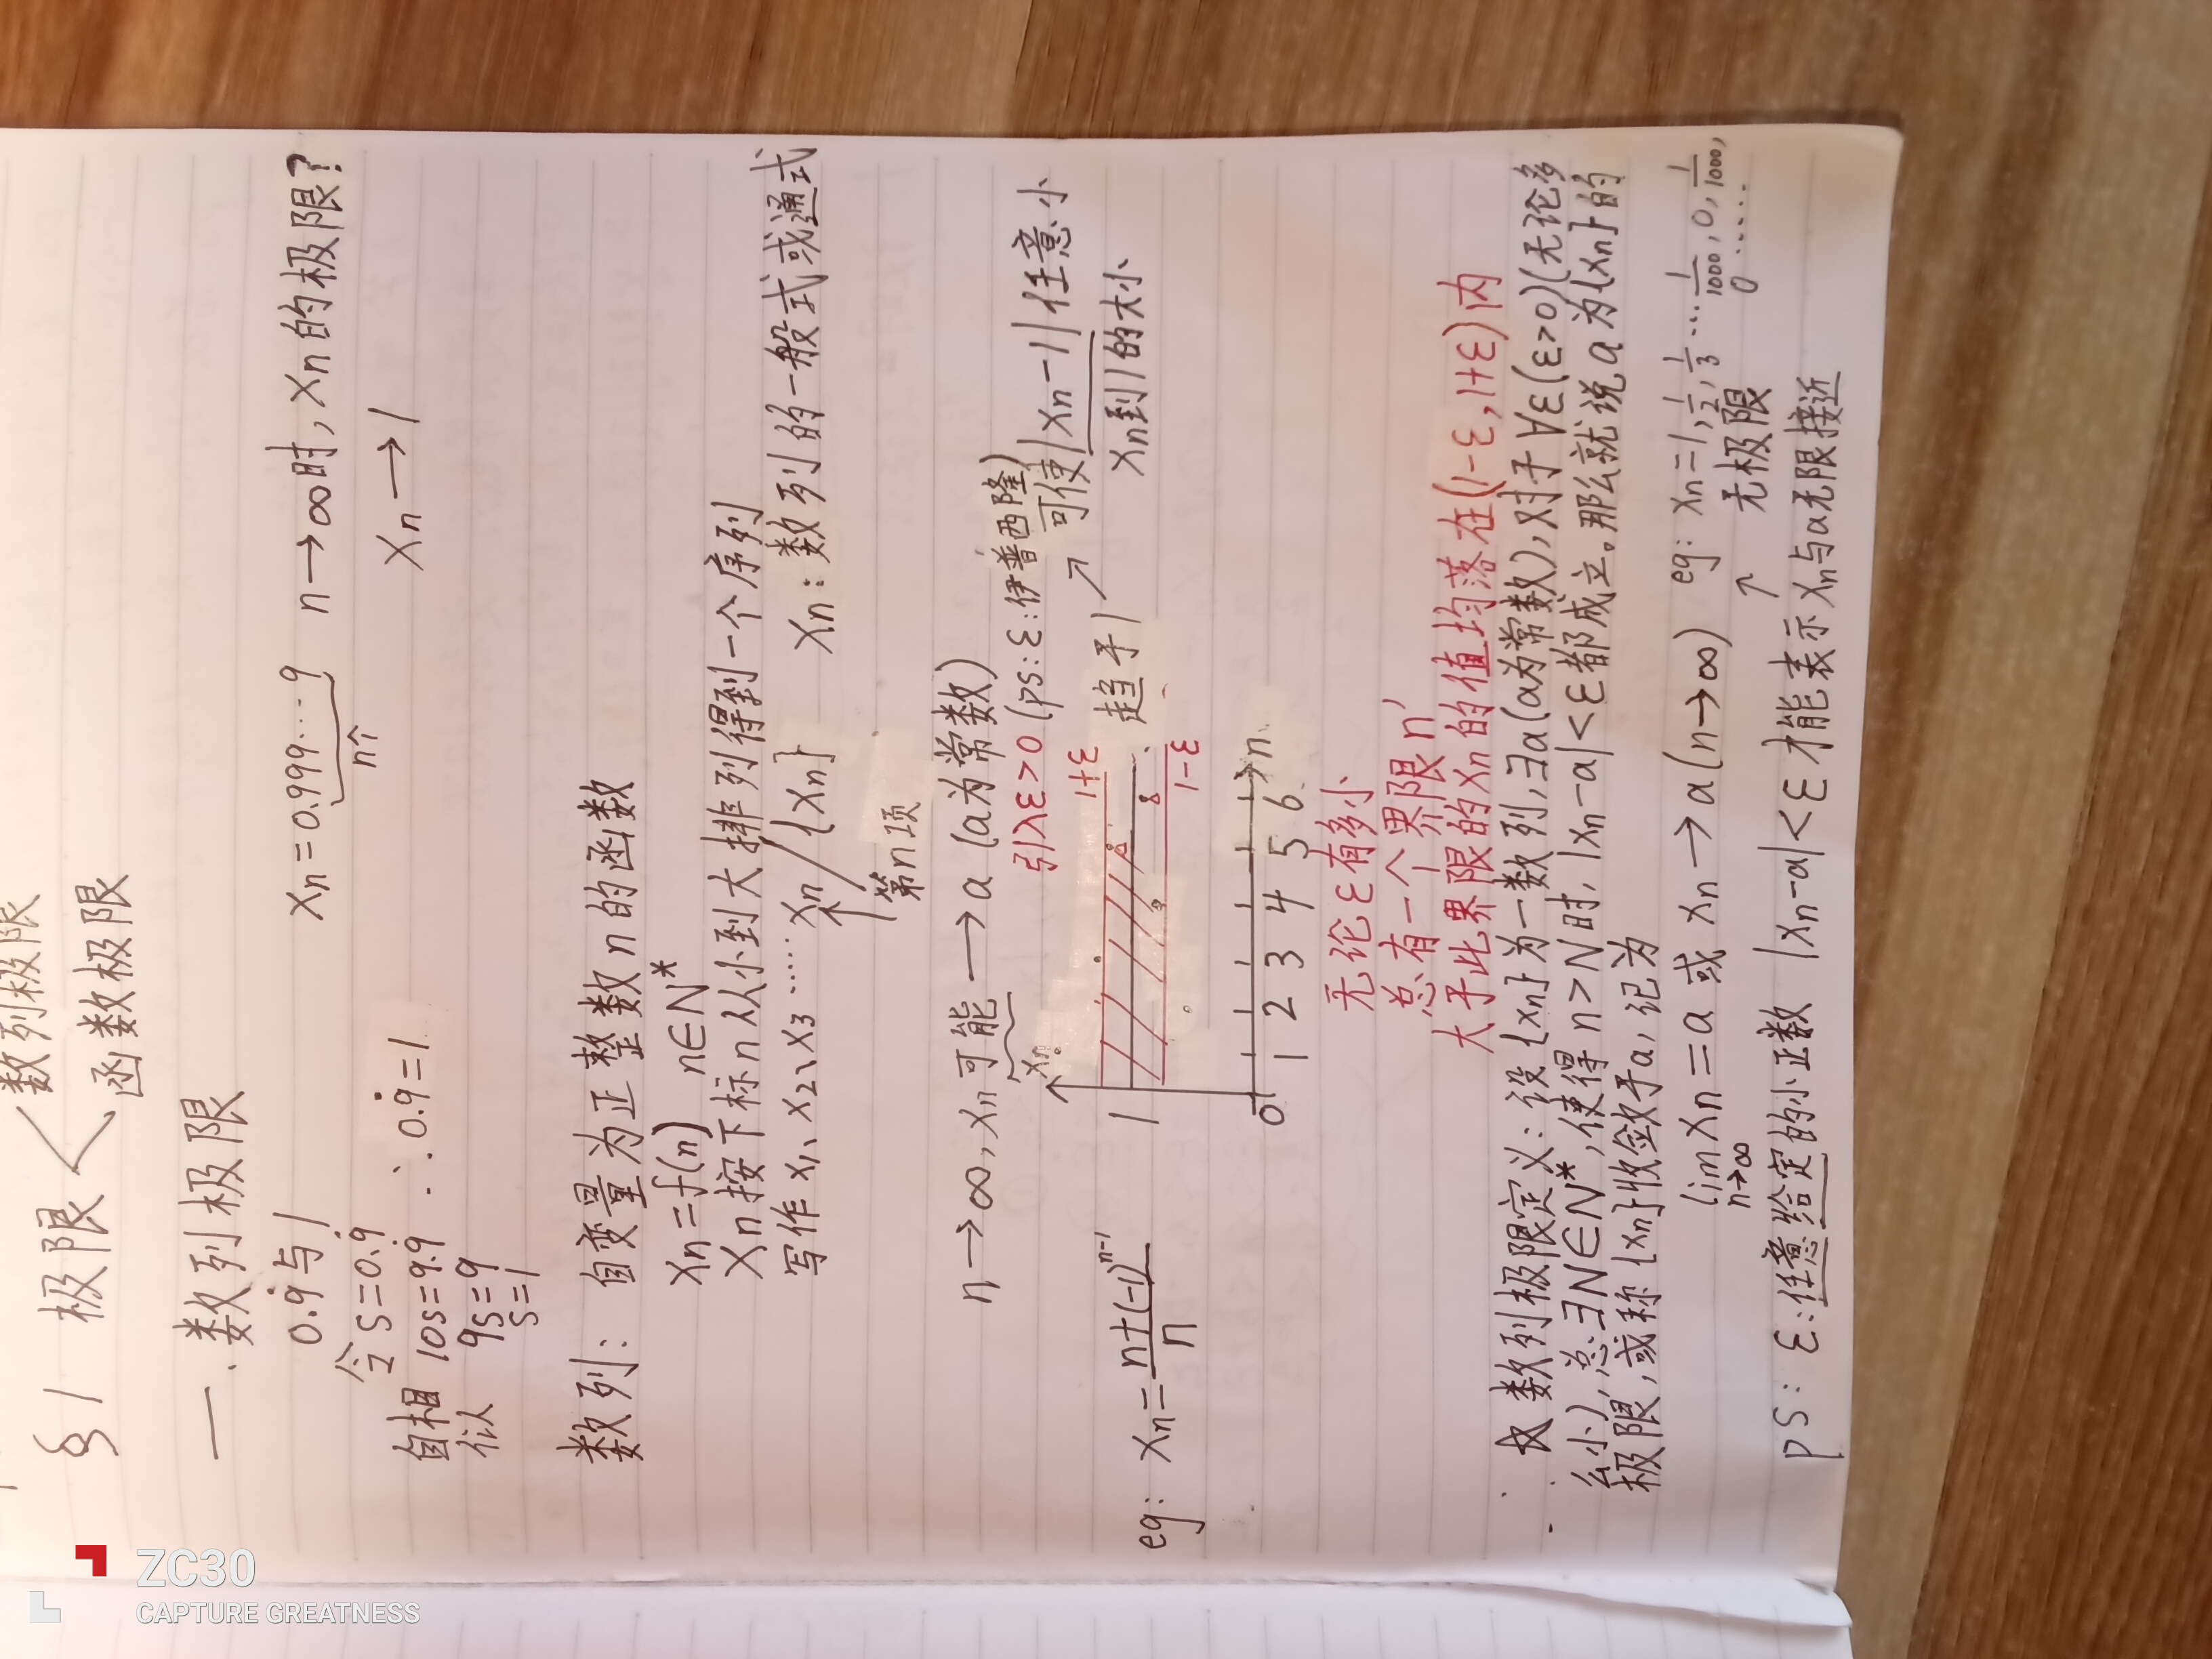 §1 极限 < 数列极限
函数极限
一. 数列极限
0.9̇与1
令 S=0.9̇
自相似 10S=9.9̇ ∴0.9̇=1
9S=9
S=1
Xn=0.999…9 n→∞时, Xn的极限?
n个
Xn→1
数列: 自变量为正整数n的函数
Xn=f(n) n∈N*
Xn按下标n从小到大排列得到一个序列
写作X1、X2、X3……Xn/{Xn} Xn:数列的一般式或通式
第n项
n→∞, Xn可能→a(a为常数)
引入ε>0 (ps:ε:伊普西隆)
eg: Xn=n+(-1)^{n-1}/n
Xn
1+ε
1
1-ε
0 1 2 3 4 5 6 →n
趋于1 ↗ 可使|Xn-1|任意小
Xn到1的大小
无论ε有多小
总有一个界限n'
大于此界限的Xn的值均落在(1-ε,1+ε)内
☆数列极限定义:设{Xn}为一数列,∃a(a为常数),对于∀ε(ε>0)(无论多
么小),总∃N∈N*,使得n>N时,|Xn-a|<ε都成立。那么就说a为{Xn}的
极限,或称{Xn}收敛于a,记为
lim Xn=a 或 Xn→a(n→∞) eg: Xn=1,1/2,1/3…1/1000,0,1/1000,
n→∞
0……
↑ 无极限
ps: ε:任意给定的小正数 |Xn-a|<ε才能表示Xn与a无限接近
ZC30
CAPTURE GREATNESS